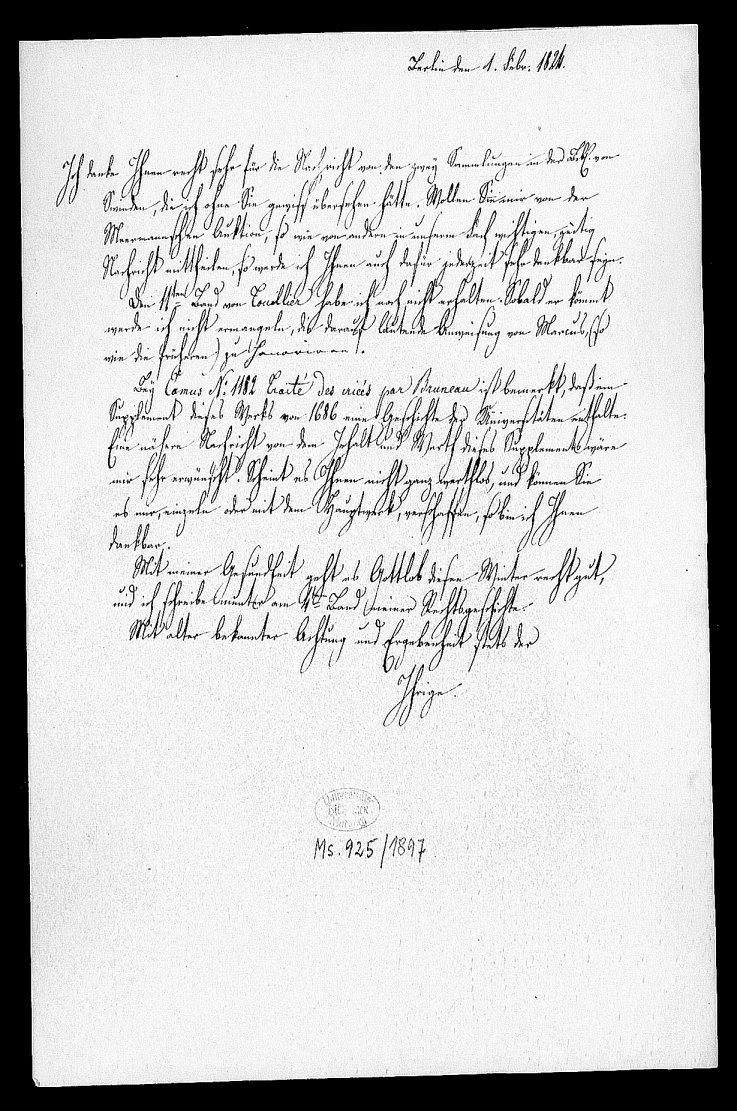 Berlin den 1. Febr. 1824.
Ich danke Ihnen recht sehr für die Nachricht von den zwey Sammlungen in der Bibl. von
Swinden, die ich ohne Sie gewiss übersehen hätte. Wollen Sie mir von der
Meermannschen Auktion, so wie von andern in unserm Fach wichtigen, zeitig
Nachricht mittheilen, so werde ich Ihnen auch dafür jederzeit sehr dankbar seyn.
Den 11ten Band von Toullier habe ich noch nicht erhalten. Sobald er kömmt
werde ich nicht ermangeln, die darauf lautende Anweisung von Marcus, (so
wie die früheren) zu honoriren.
Bey Camus No. 1182 Traité des criées par Bruneau ist bemerkt, daß ein
Supplement dieses Werks von 1686 eine Geschichte der Universitäten enthalte.
Eine nähere Nachricht von dem Inhalt und Werth dieses Supplements wäre
mir sehr erwünscht. Scheint es Ihnen nicht ganz werthlos, und können Sie
es mir, einzeln oder mit dem Hauptwerk, verschaffen, so bin ich Ihnen
dankbar.
Mit meiner Gesundheit geht es Gottlob diesen Winter recht gut,
und ich schreibe munter am 4ten Band meiner Rechtsgeschichte.
Mit alter bekannter Achtung und Ergebenheit stets der
Ihrige.
Ms. 925/1897